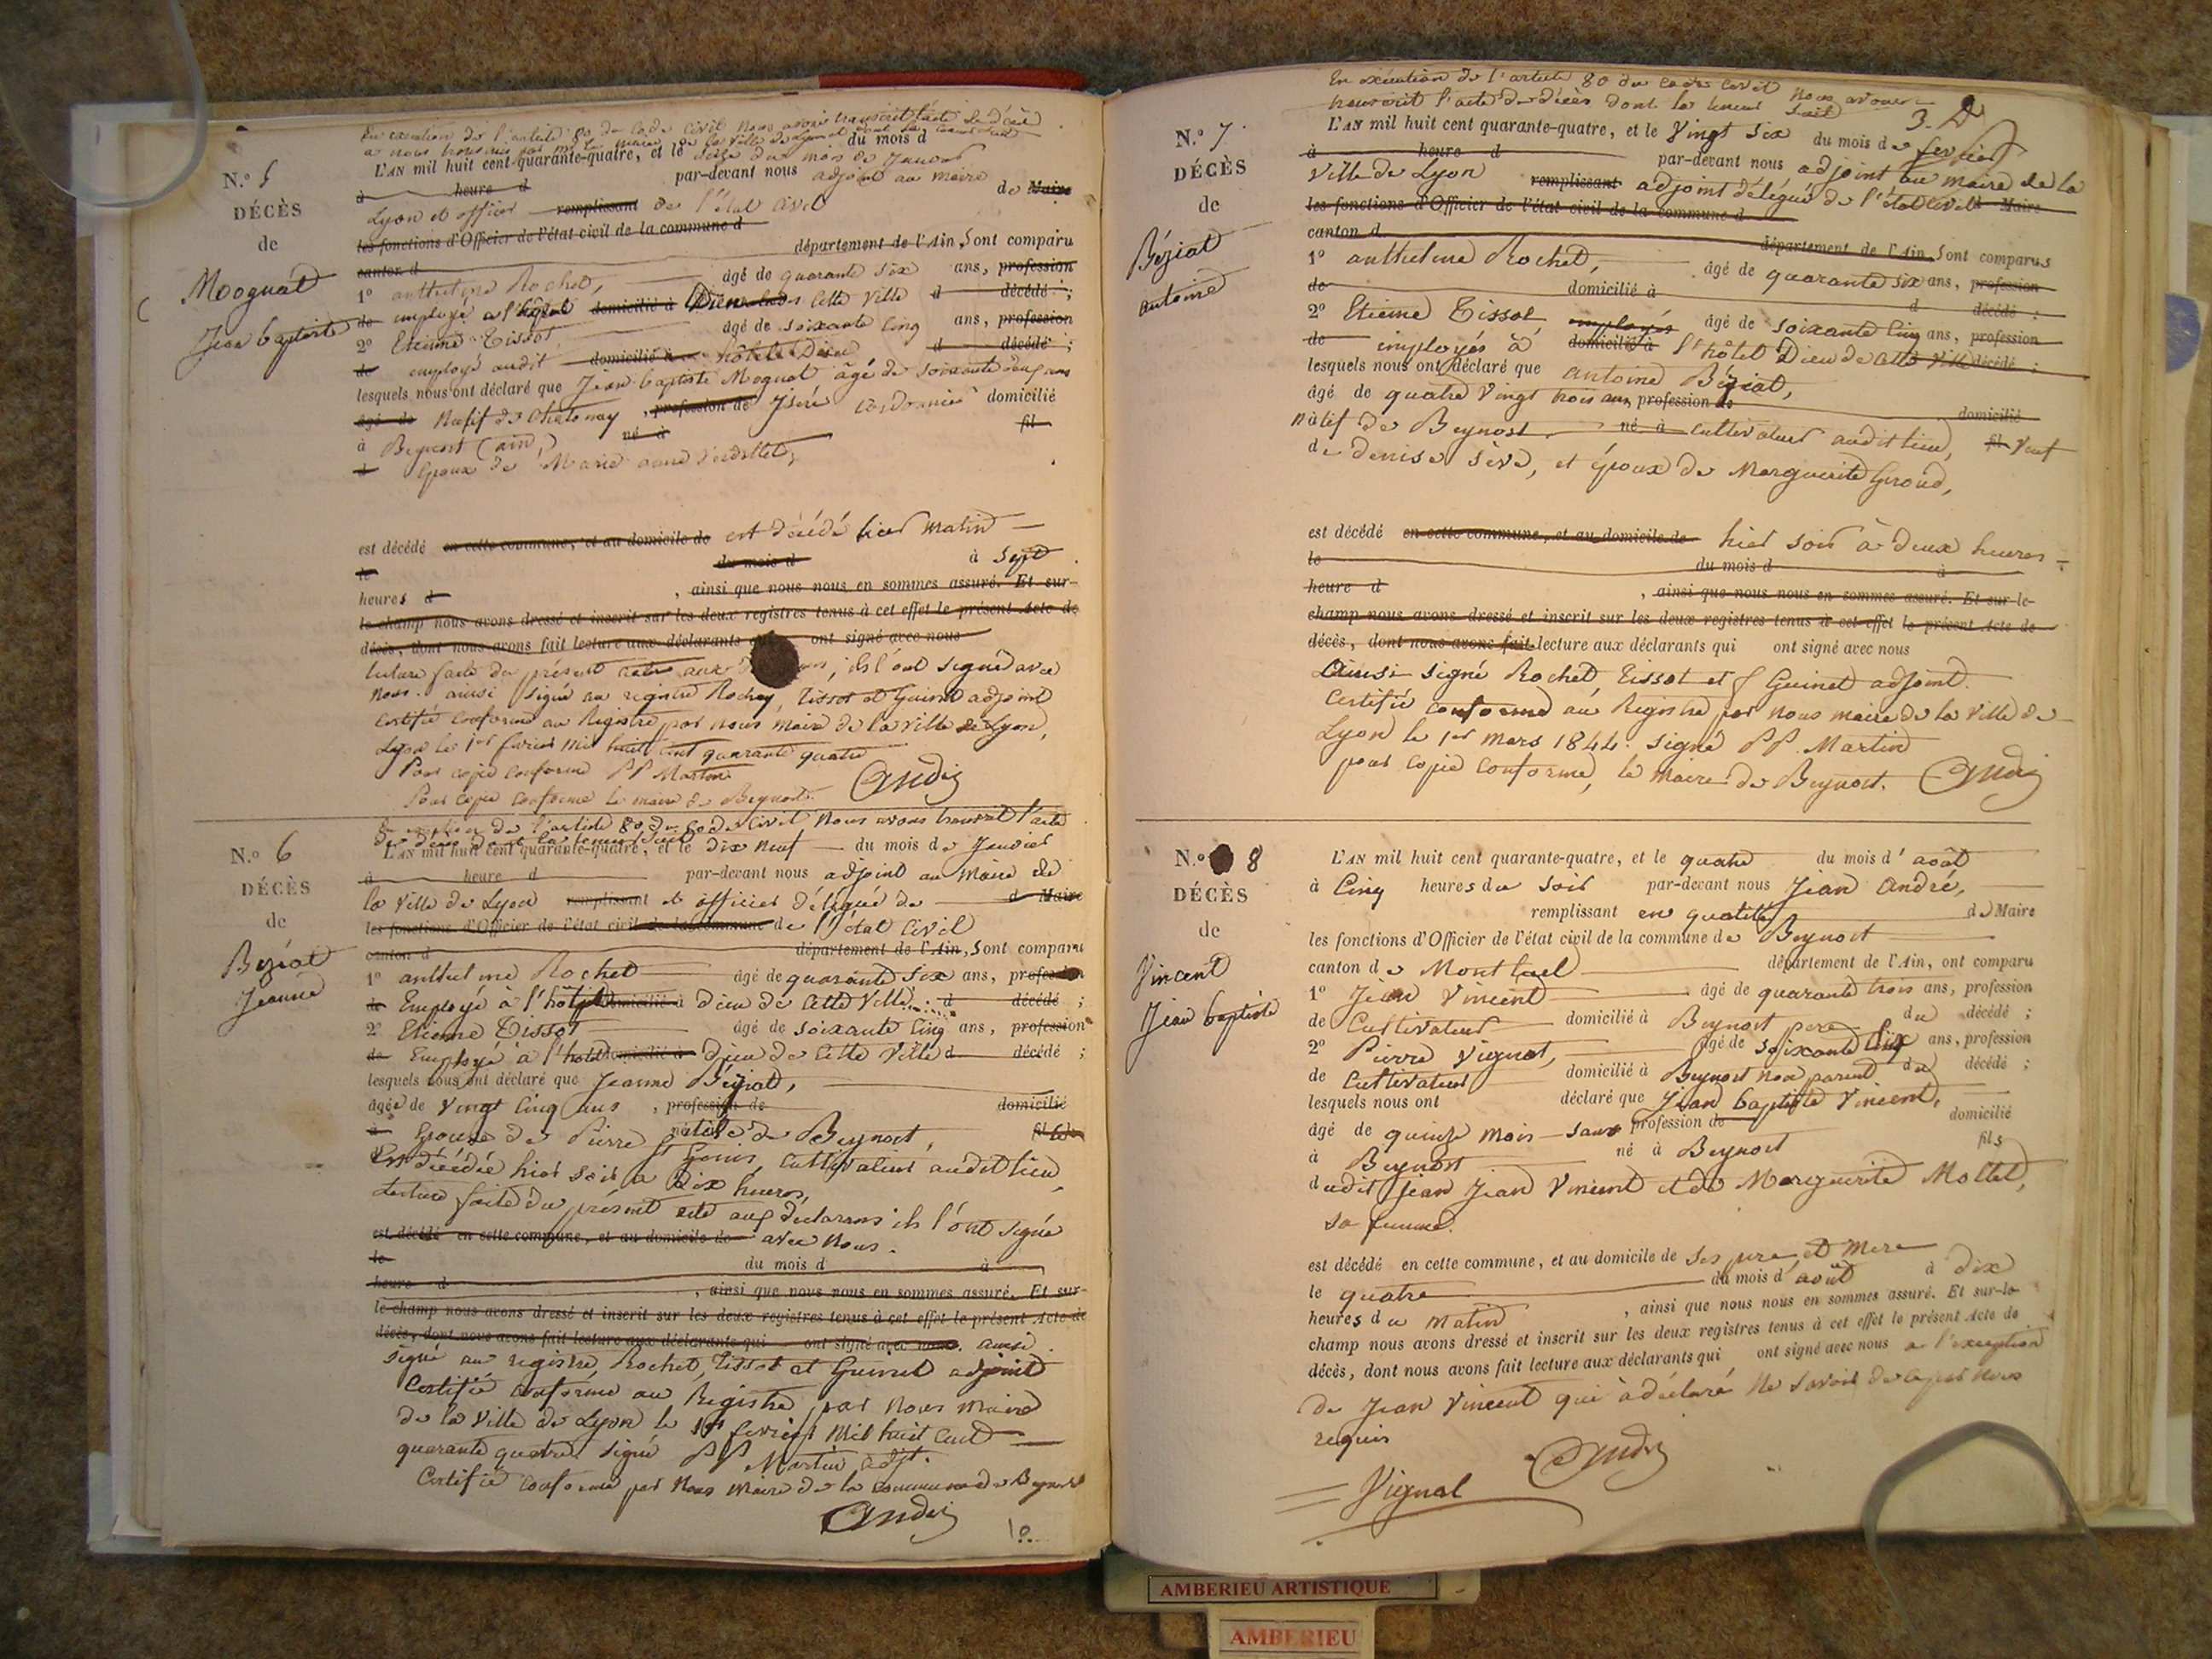 En exécution de l'article 80 du code civil nous avons transcrit l'acte de décès
à nous transmis par mr le maire de la ville de Lyon et dont la teneur suit
N.º 5
DÉCÈS
de
Mognat
Jean baptiste
L'AN mil huit cent quarante-quatre, et le seize du mois de Janvier du mois d
à heure d par-devant nous adjoint au maire de Maire
Lyon et officier remplissant de l'état civil
les fonctions d'Officier de l'état civil de la commune d
canton d département de l'Ain, Sont comparu
1º anthelme Rochet, âgé de quarante six ans, profession
de employé a l'hôtel domicilié à Dieu de cette ville d décédé ;
2º Etienne Tissot âgé de soixante cinq ans, profession
de employé audit domicilié à hôtel Dieu d décédé ;
lesquels nous ont déclaré que Jean baptiste Mognat âgé de soixante ans
âgé de Natif de Chatonay , profession de Isère cordonnier domicilié
à Beynost (ain) né à fil
d Epoux de Marie
est décédé en cette commune, et au domicile de est décédé hier matin
le du mois d à Sept
heures d , ainsi que nous nous en sommes assuré. Et sur-
le champ nous avons dressé et inscrit sur les deux registres tenus à cet effet le présent Acte de
décès, dont nous avons fait lecture aux déclarants qui ont signé avec nous
lecture faite du présent acte aux , ils l'ont signé avec
nous. ainsi signé au registre Rochet, Tissot et Guinet adjoint
Certifié conforme au Registre par nous maire de la ville de Lyon,
Lyon le 1er fevrier mil huit cent quarante quatre
Pour copie conforme PP Martin
Pour copie conforme le maire de Beynost. André
En exécution de l'article 80 du code civil Nous avons transcrit l'acte
de décès dont la teneur suit
N.º 6
DÉCÈS
de
Beziat
Jeanne
L'AN mil huit cent quarante-quatre, et le dix neuf du mois de Janvier
à heure d par-devant nous adjoint au Maire de
la Ville de Lyon remplissant et officier délégué de d Maire
les fonctions d'Officier de l'état civil de la commune de l'Etat Civil
canton d département de l'Ain, Sont comparu
1º anthelme Rochet âgé de quarante six ans, profession
de Employé à l'hôtel domicilié à Dieu de cette Ville d décédé ;
2º Etienne Tissot âgé de soixante cinq ans, profession
de Employé à l'hotel domicilié à Dieu de cette Ville d décédé ;
lesquels nous ont déclaré que Jeanne Béziat,
âgée de vingt cinq ans , profession de domicilié
à Epouse de Pierre native de Beynost, fil
cultivateur audit lieu,
Est décédée hier soir à dix heures,
Lecture faite du présent acte aux déclarans ils l'ont signé
est décédé en cette commune, et au domicile de avec nous.
le du mois d à
heure d , ainsi que nous nous en sommes assuré. Et sur-
le champ nous avons dressé et inscrit sur les deux registres tenus à cet effet le présent Acte de
décès, dont nous avons fait lecture aux déclarants qui ont signé avec nous. ainsi
signé au registre Rochet, Tissot et Guinet adjoint
Certifié conforme au Registre par nous Maire
de la Ville de Lyon le 1er fevrier Mil huit Cent
quarante quatre signé PP Martin adjt.
Certifié conforme par Nous Maire de la Commune de Beynost
André
En exécution de l'article 80 du code Civil Nous avons
transcrit l'acte de décès dont la teneur suit
3.
N.º 7
DÉCÈS
de
Béziat
antoine
L'AN mil huit cent quarante-quatre, et le Vingt six du mois de fevrier
à heure d par-devant nous adjoint au Maire de la
Ville de Lyon remplissant adjoint délégué de l'état civil Maire
les fonctions d'Officier de l'état civil de la commune d
canton d département de l'Ain, Sont comparus
1º anthelme Rochet, âgé de quarante six ans, profession
de domicilié à d décédé ;
2º Etienne Tissot employés âgé de soixante cinq ans, profession
de employés à domicilié à l'hôtel Dieu de cette Ville décédé ;
lesquels nous ont déclaré que antoine Béziat,
âgé de quatre vingt trois ans, profession de domicilié
natif de Beynost né à cultivateur audit lieu, fil veuf
de denise Sève, et Epoux de Marguerite Giroud,
est décédé en cette commune, et au domicile de hier soir à deux heures
le du mois d à
heure d , ainsi que nous nous en sommes assuré. Et sur-le-
champ nous avons dressé et inscrit sur les deux registres tenus à cet effet le présent Acte de
décès, dont nous avons fait lecture aux déclarants qui ont signé avec nous
Ainsi signé Rochet, Tissot et Guinet adjoint.
Certifié conforme au Registre par nous maire de la Ville de
Lyon le 1er mars 1844. signé PP. Martin
pour copie conforme, le maire de Beynost. André
N.º 8
DÉCÈS
de
Vincent
Jean baptiste
L'AN mil huit cent quarante-quatre, et le quatre du mois d'août
à Cinq heures du soir par-devant nous Jean André,
remplissant en qualité de Maire
les fonctions d'Officier de l'état civil de la commune de Beynost
canton de Montluel département de l'Ain, ont comparu
1º Jean Vincent âgé de quarante trois ans, profession
de Cultivateur domicilié à Beynost père du décédé ;
2º Pierre Vignat, âgé de soixante dix ans, profession
de Cultivateur domicilié à Beynost non parent du décédé ;
lesquels nous ont déclaré que Jean baptiste Vincent,
âgé de quinze mois sans profession de domicilié
à Beynost né à Beynost fils
dudit Jean Jean Vincent et de Marguerite Mollet,
sa femme.
est décédé en cette commune, et au domicile de ses père et mère
le quatre du mois d'août à dix
heures du matin , ainsi que nous nous en sommes assuré. Et sur-le-
champ nous avons dressé et inscrit sur les deux registres tenus à cet effet le présent Acte de
décès, dont nous avons fait lecture aux déclarants qui ont signé avec nous a l'exception
de Jean Vincent qui à déclaré Ne savoir de ce par nous
requis
André
Vignat
AMBERIEU ARTISTIQUE
AMBERIEU